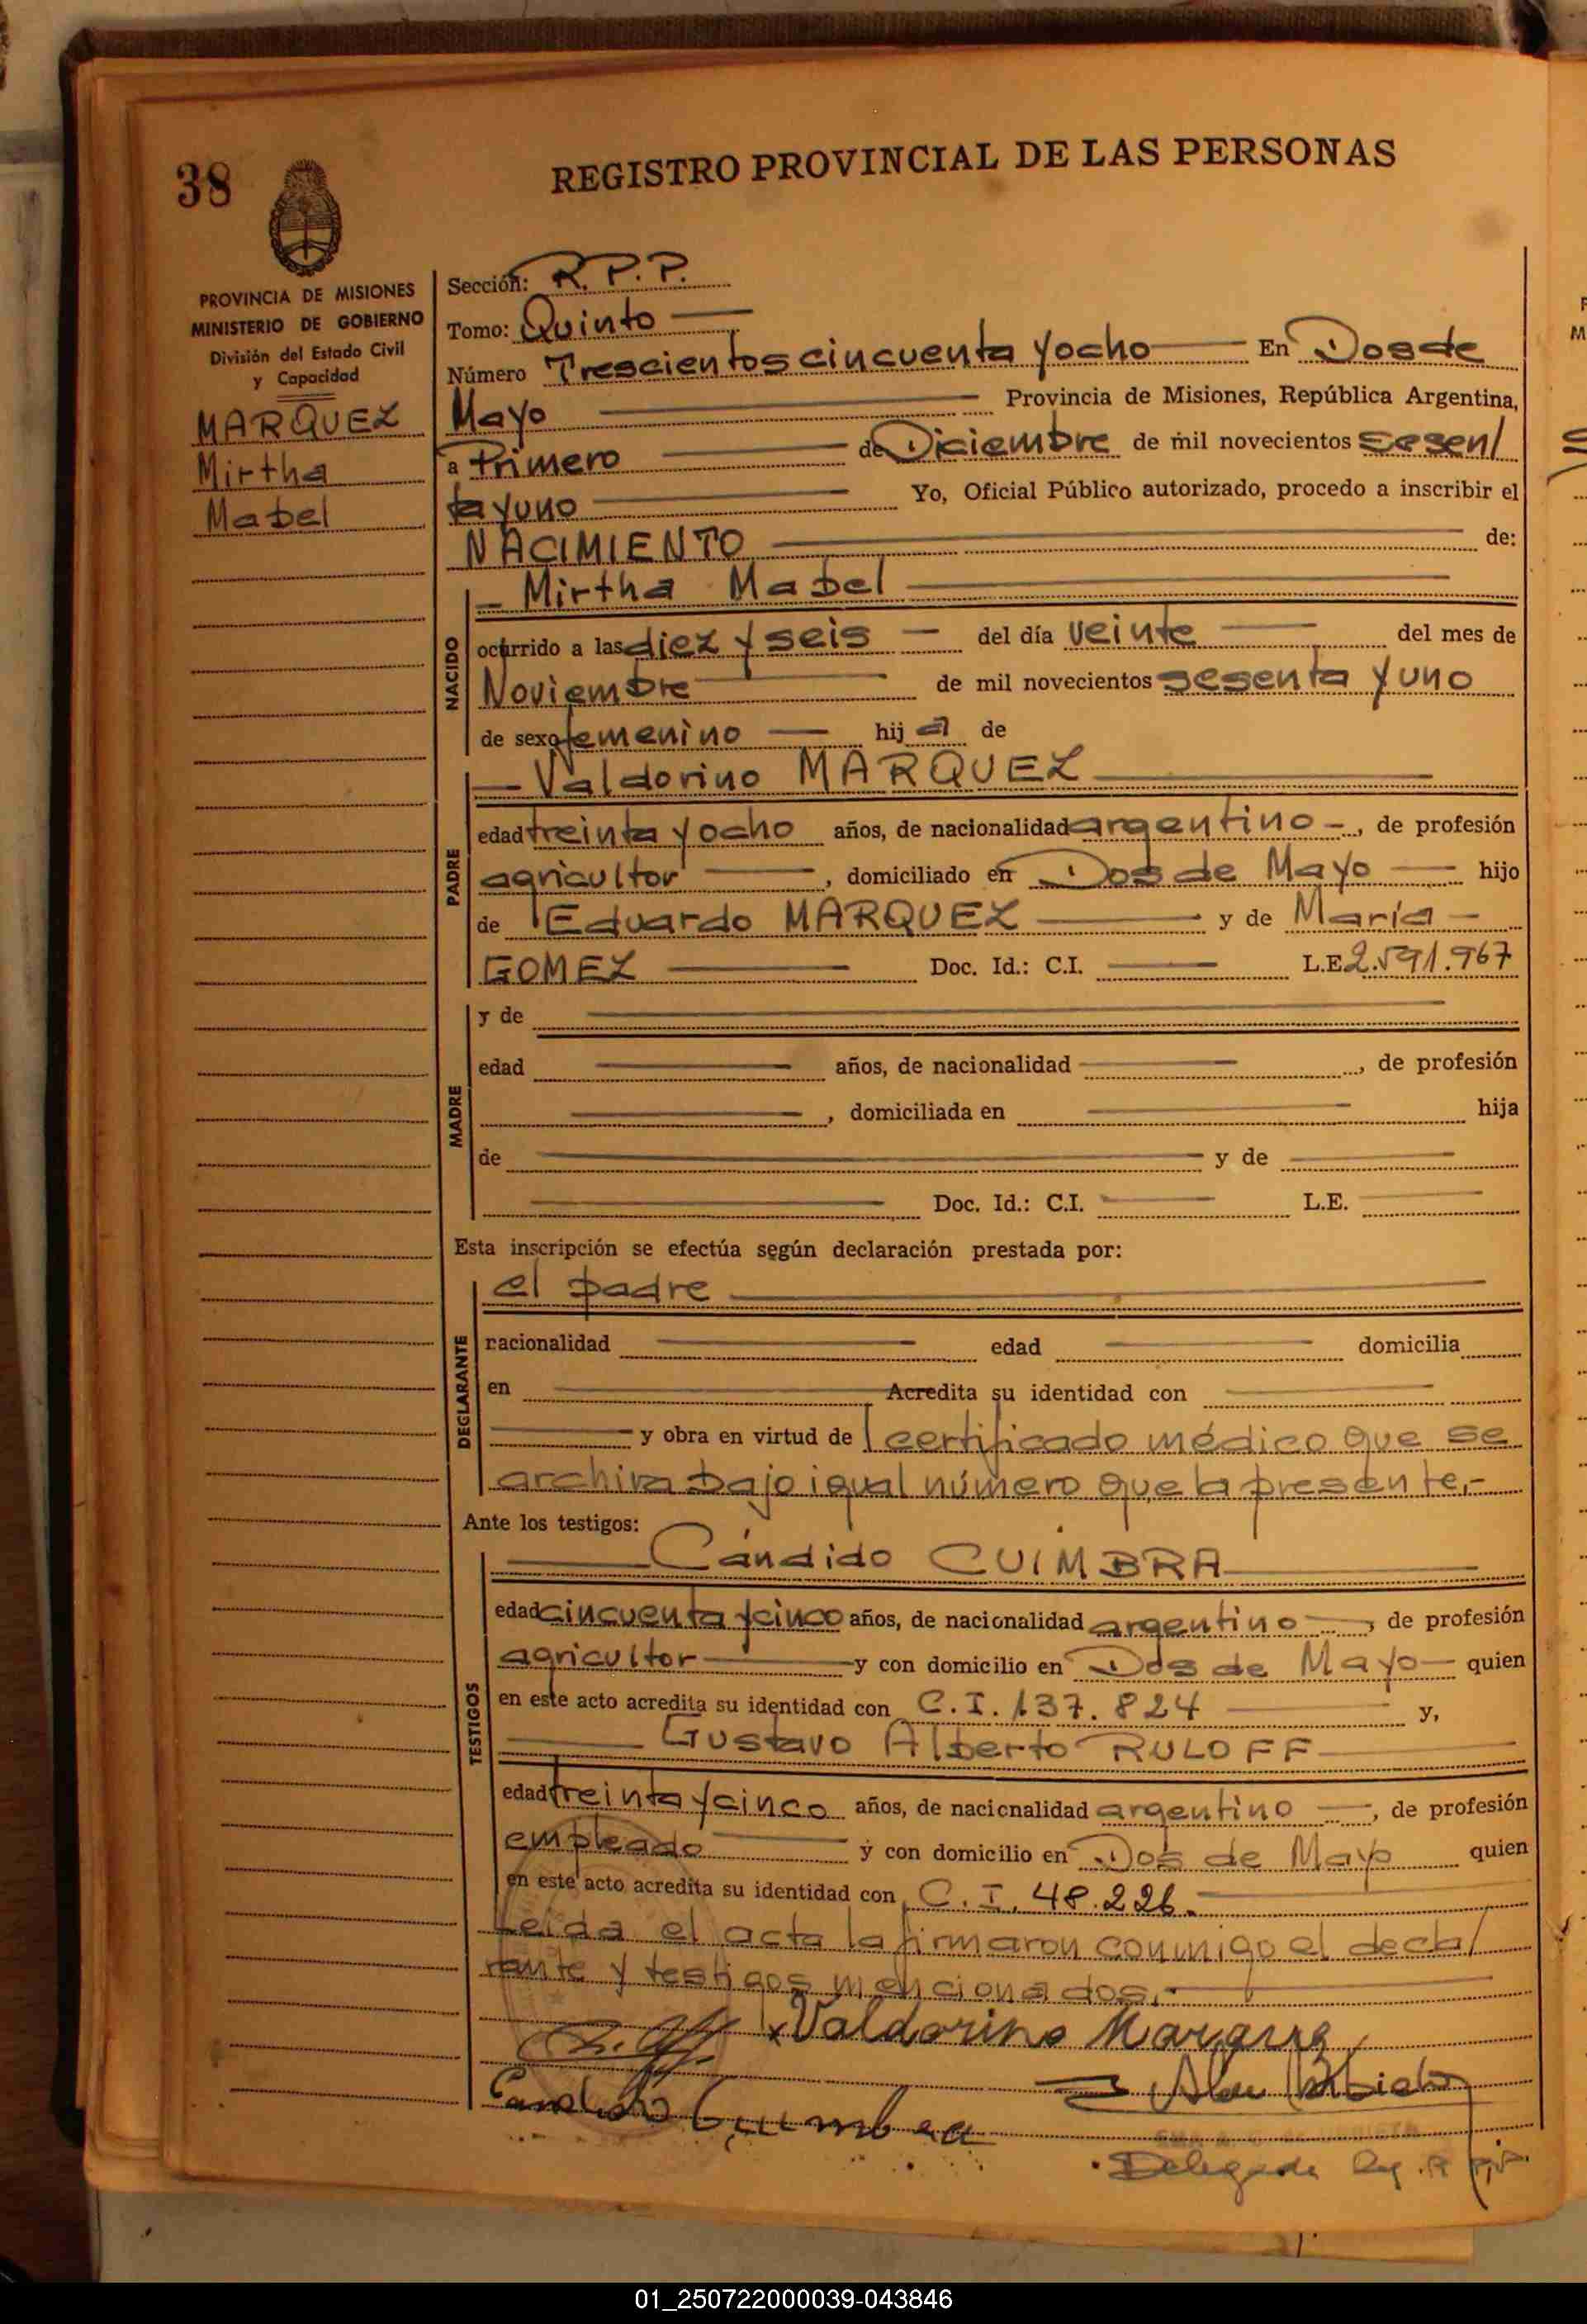 38
REGISTRO PROVINCIAL DE LAS PERSONAS
PROVINCIA DE MISIONES
MINISTERIO DE GOBIERNO
División del Estado Civil
y Capacidad
MARQUEZ
Mirtha
Mabel
Sección: R. P. P.
Tomo: Quinto
Número Trescientos cincuenta y ocho En Dos de
Mayo Provincia de Misiones, República Argentina,
a Primero de Diciembre de mil novecientos sesen/
ta y uno Yo, Oficial Público autorizado, procedo a inscribir el
NACIMIENTO de:
Mirtha Mabel
NACIDO
ocurrido a las diez y seis del día veinte del mes de
Noviembre de mil novecientos sesenta y uno
de sexo femenino hija de
Valdorino MARQUEZ
PADRE
edad treinta y ocho años, de nacionalidad argentino, de profesión
agricultor, domiciliado en Dos de Mayo hijo
de Eduardo MARQUEZ y de María
GOMEZ Doc. Id.: C.I. L.E. 2.591.967
MADRE
y de
edad años, de nacionalidad , de profesión
, domiciliada en hija
de y de
Doc. Id.: C.I. L.E.
Esta inscripción se efectúa según declaración prestada por:
el padre
DECLARANTE
nacionalidad edad domicilia
en Acredita su identidad con
y obra en virtud de certificado médico que se
archiva bajo igual número que la presente.-
Ante los testigos:
Cándido CUIMBRA
TESTIGOS
edad cincuenta y cinco años, de nacionalidad argentino, de profesión
agricultor y con domicilio en Dos de Mayo quien
en este acto acredita su identidad con C.I. 137.824 y,
Gustavo Alberto RULOFF
edad treinta y cinco años, de nacionalidad argentino, de profesión
empleado y con domicilio en Dos de Mayo quien
en este acto acredita su identidad con C.I. 48.226.
Leída el acta la firmaron conmigo el decla/
rante y testigos mencionados.-
x Valdorino Marquez
Candido Cuimbra
Delegada Reg.
01_250722000039-043846